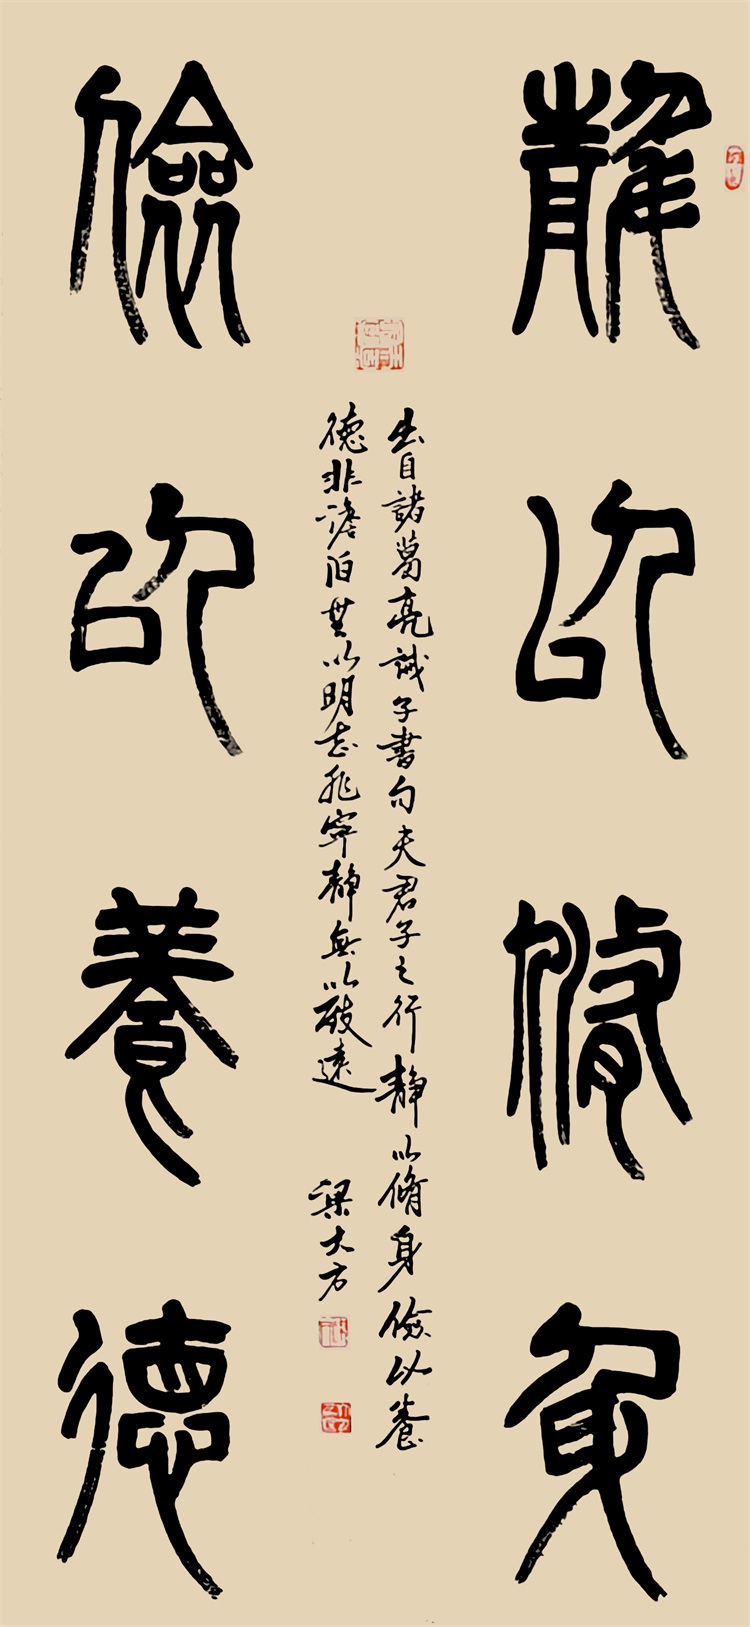 靜以脩身
儉以養德
出自諸葛亮誡子書句夫君子之行靜以脩身儉以養
德非澹泊無以明志非寧靜無以致遠 梁大方